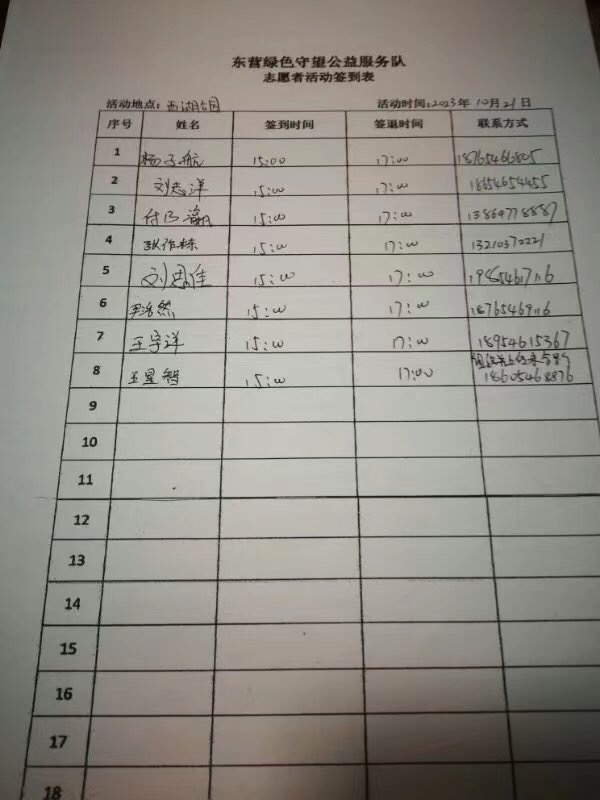 东营绿色守望公益服务队
志愿者活动签到表
活动地点:西湖公园 活动时间:2023年10月21日
序号 姓名 签到时间 签退时间 联系方式
1 杨子航 15:00 17:00 18765466805
2 刘志洋 15:00 17:00 18654654455
3 15:00 17:00 13869778887
4 15:00 17:00 13210372221
5 刘思佳 15:00 17:00 19865467116
6 尹浩然 15:00 17:00 18765469116
7 王宇洋 15:00 17:00 18954615367
8 王星智 15:00 17:00 18605468876
9
10
11
12
13
14
15
16
17
18